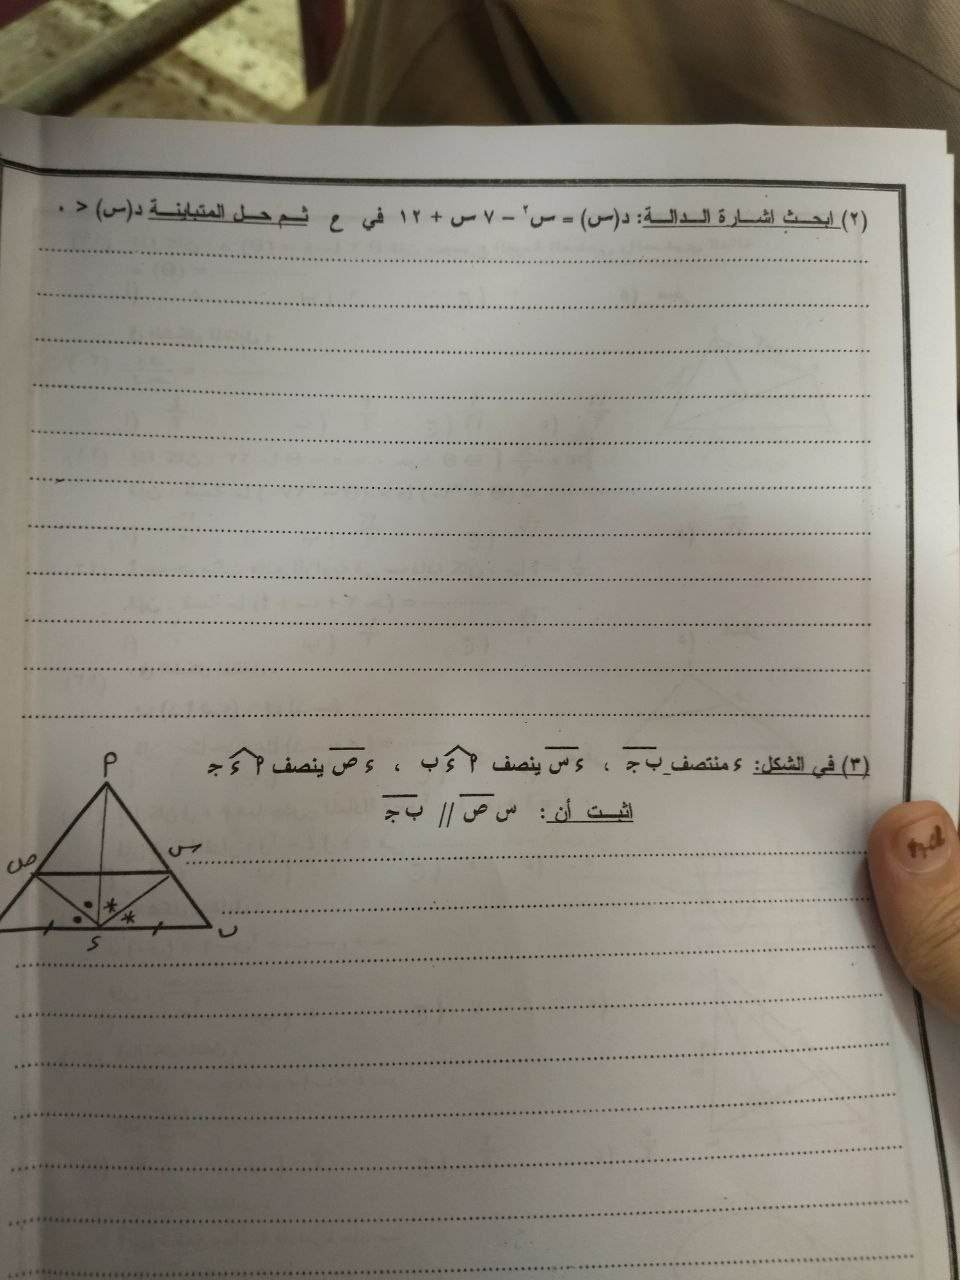 (٢) ابحث اشارة الدالة: د(س) = س٢ − ٧ س + ١٢ في ح ثم حل المتباينة د(س) < ٠
(٣) في الشكل: ء منتصف ب ج ، ء س ينصف أ ء ب ، ء ص ينصف أ ء ج
اثبت أن: س ص // ب ج
أ
س
ص
ب
ء